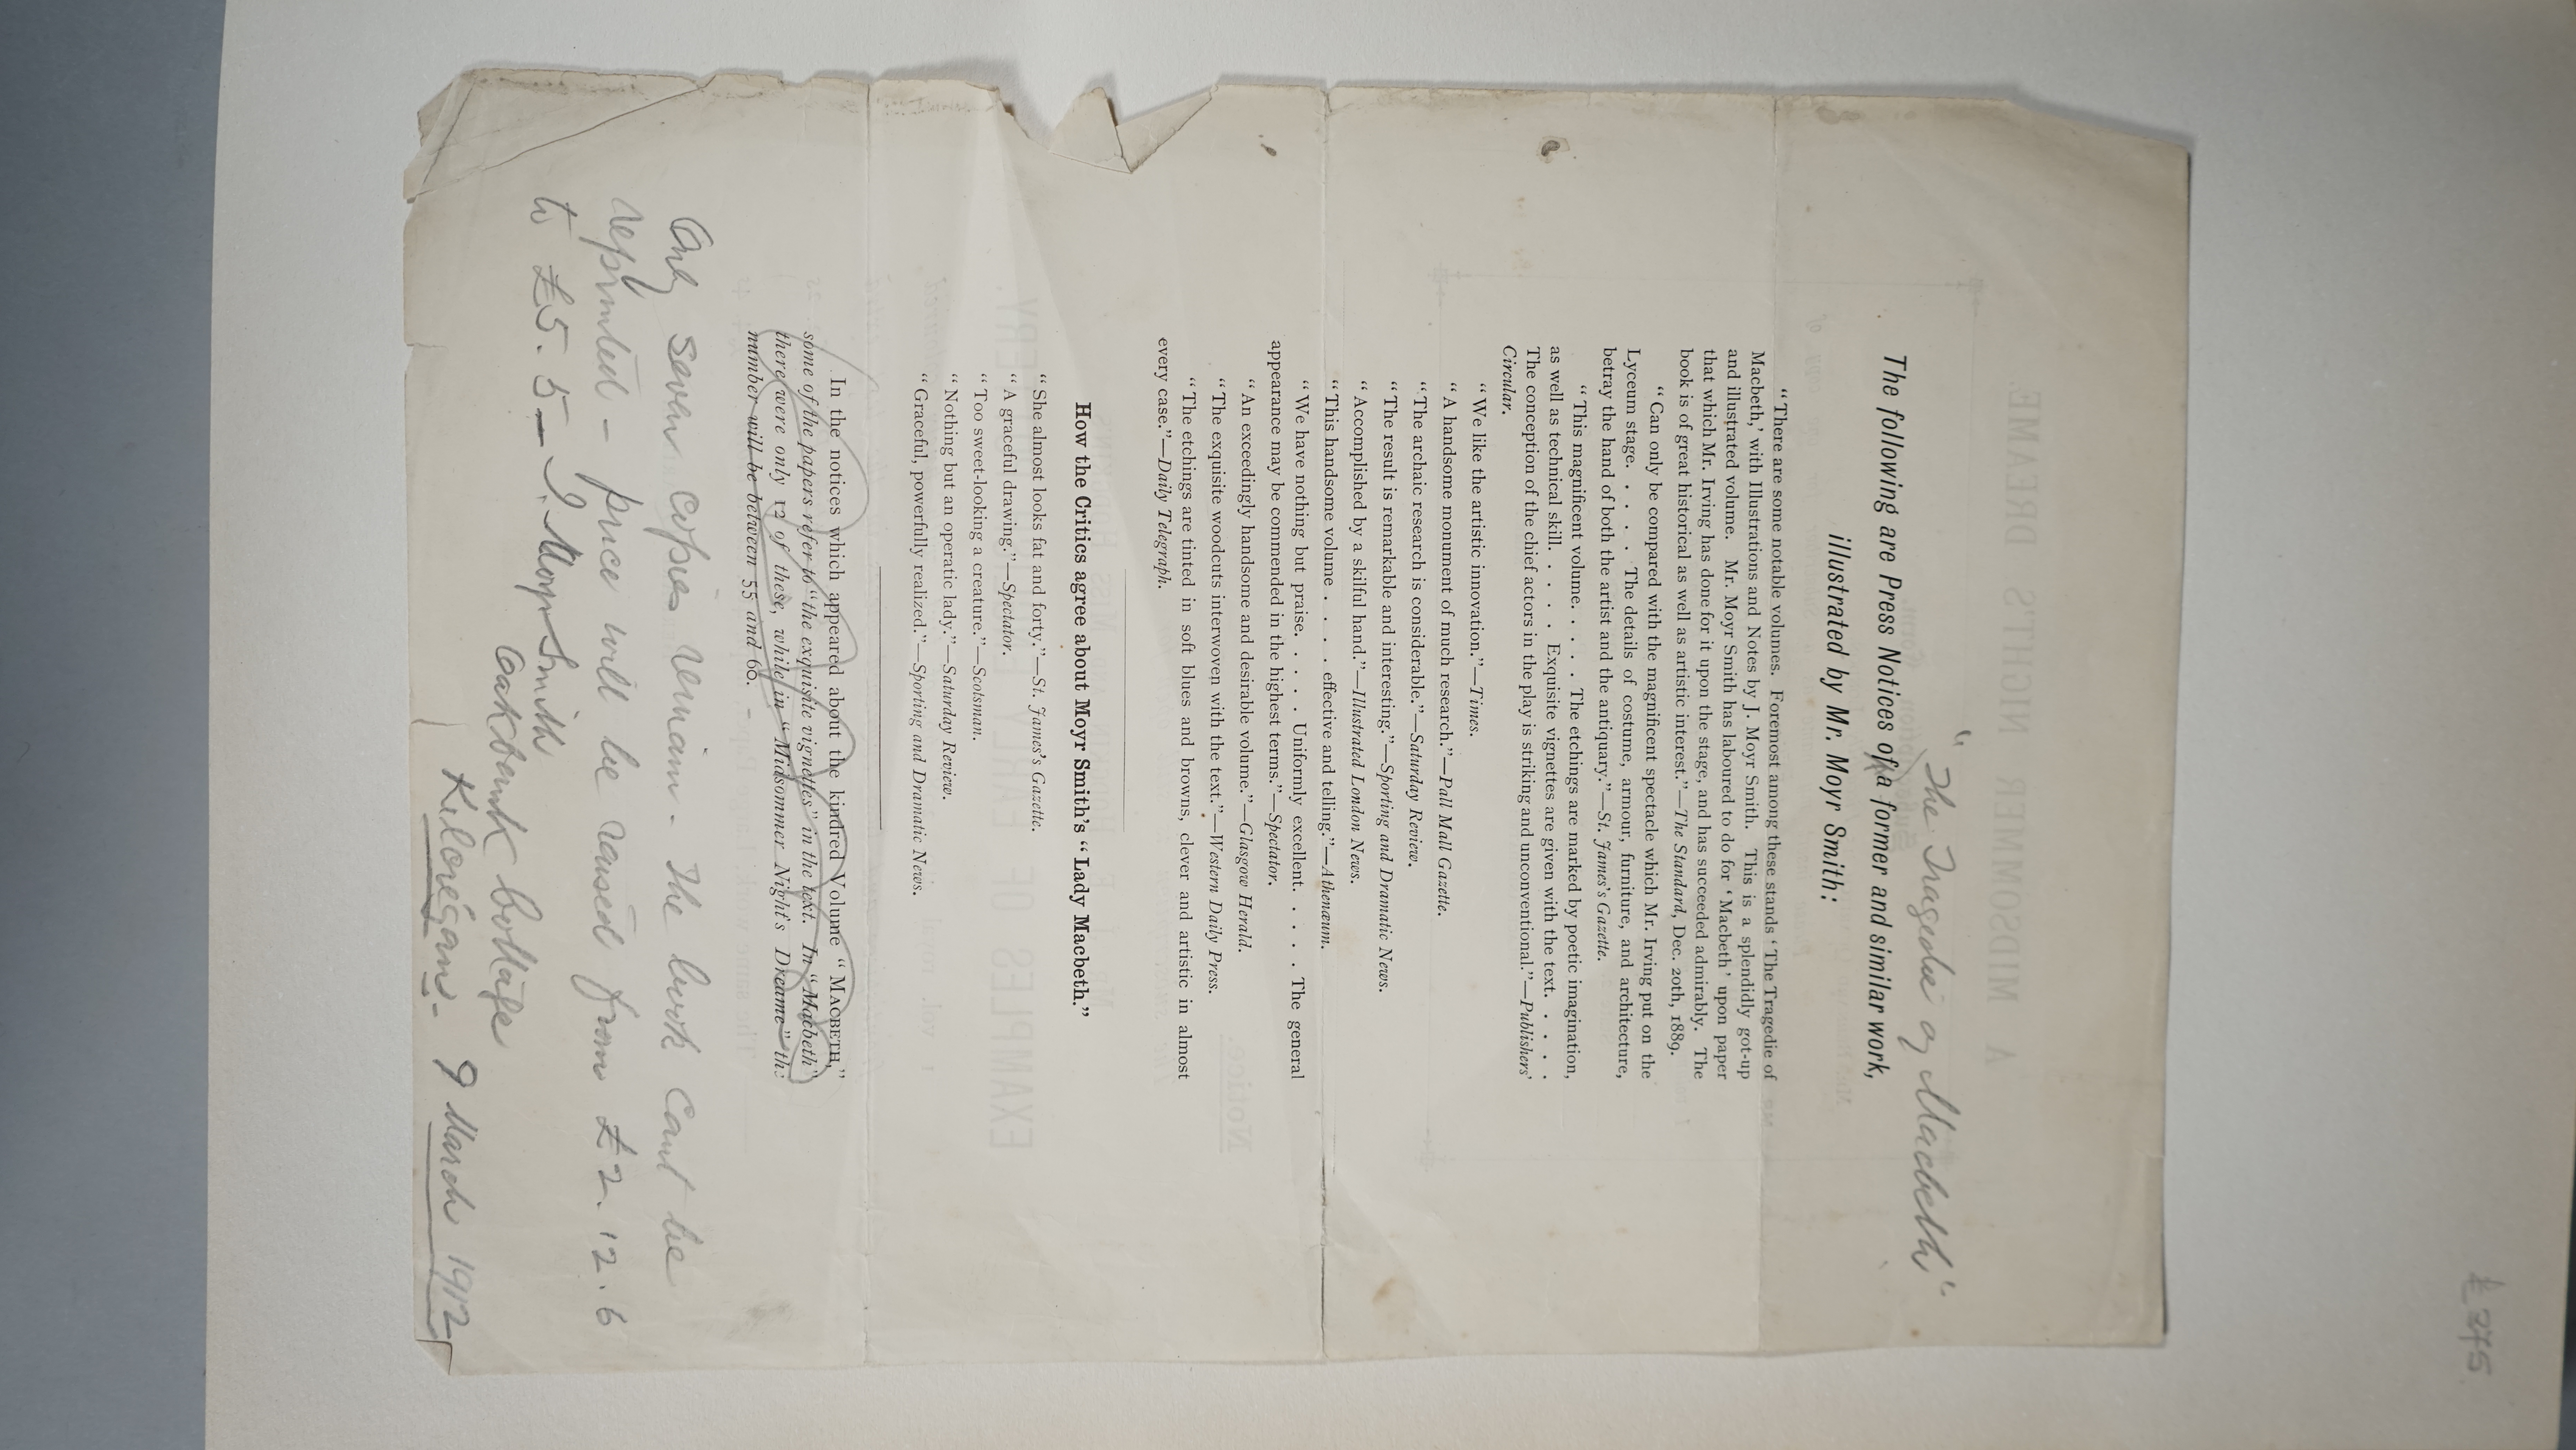 £375
"The Tragedie of Macbeth"
The following are Press Notices of a former and similar work,
illustrated by Mr. Moyr Smith:
“There are some notable volumes. Foremost among these stands ‘The Tragedie of
Macbeth,’ with Illustrations and Notes by J. Moyr Smith. This is a splendidly got-up
and illustrated volume. Mr. Moyr Smith has laboured to do for ‘Macbeth’ upon paper
that which Mr. Irving has done for it upon the stage, and has succeeded admirably. The
book is of great historical as well as artistic interest.”—The Standard, Dec. 20th, 1889.
“Can only be compared with the magnificent spectacle which Mr. Irving put on the
Lyceum stage. . . . . The details of costume, armour, furniture, and architecture,
betray the hand of both the artist and the antiquary.”—St. James's Gazette.
“This magnificent volume. . . . . The etchings are marked by poetic imagination,
as well as technical skill. . . . . Exquisite vignettes are given with the text. . . . .
The conception of the chief actors in the play is striking and unconventional.”—Publishers'
Circular.
“We like the artistic innovation.”—Times.
“A handsome monument of much research.”—Pall Mall Gazette.
“The archaic research is considerable.”—Saturday Review.
“The result is remarkable and interesting.”—Sporting and Dramatic News.
“Accomplished by a skilful hand.”—Illustrated London News.
“This handsome volume . . . . effective and telling.”—Athenæum.
“We have nothing but praise. . . . . Uniformly excellent. . . . . The general
appearance may be commended in the highest terms.”—Spectator.
“An exceedingly handsome and desirable volume.”—Glasgow Herald.
“The exquisite woodcuts interwoven with the text.”—Western Daily Press.
“The etchings are tinted in soft blues and browns, clever and artistic in almost
every case.”—Daily Telegraph.
How the Critics agree about Moyr Smith's “Lady Macbeth.”
“She almost looks fat and forty.”—St. James's Gazette.
“A graceful drawing.”—Spectator.
“Too sweet-looking a creature.”—Scotsman.
“Nothing but an operatic lady.”—Saturday Review.
“Graceful, powerfully realized.”—Sporting and Dramatic News.
In the notices which appeared about the kindred Volume “MACBETH,”
some of the papers refer to “the exquisite vignettes” in the text. In “Macbeth”
there were only 12 of these, while in “Midsommer Night's Dreame” the
number will be between 55 and 60.
Only seven copies remain. The book cant be
reprinted - price will be raised from £2.12.6
to £5.5— J. Moyr Smith
Oakbank Cottage
Kilcregan. 9 March 1912